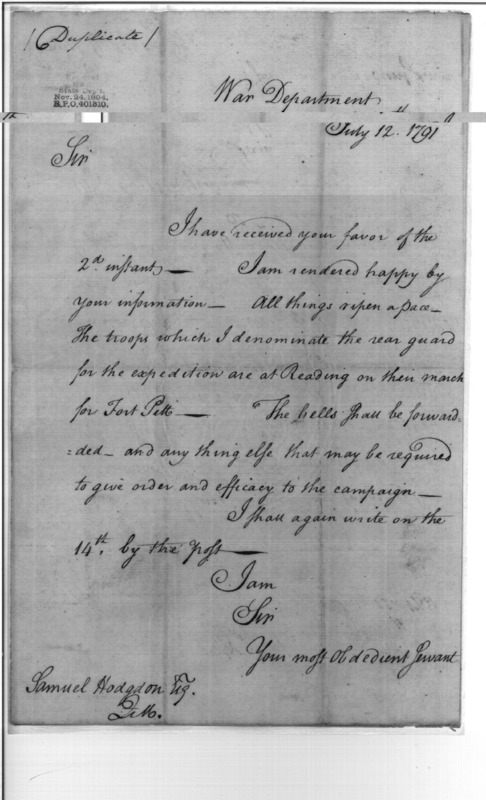 (Duplicate)
State Dep't.
Nov. 24, 1904.
R.P.O. 401310.
War Department
July 12th. 1791
Sir
I have received your favor of the
2d. instant — I am rendered happy by
your information — All things ripen apace —
The troops which I denominate the rear guard
for the expedition are at Reading on their march
for Fort Pitt — The bells shall be forward=
=ded — and any thing else that may be required
to give order and efficacy to the campaign —
I shall again write on the
14th. by the post —
I am
Sir
Your most Obdedient Servant
Samuel Hodgdon Esq.
Pitt.